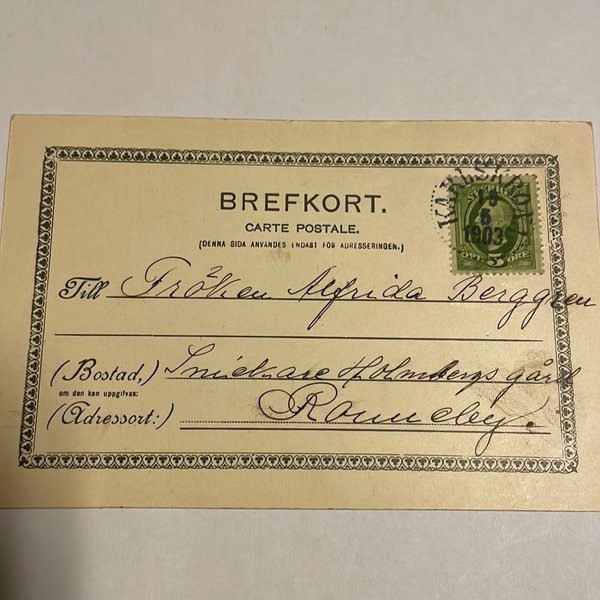 BREFKORT.
CARTE POSTALE.
(DENNA SIDA ANVANDES ENDAST FÖR ADRESSERINGEN.)
KARLSKRONA
18
5
1903
SVERIGE
5
ÖRE
Till Fröken Alfrida Berggren
(Bostad,) Snickare Holmbergs gård
om den kan uppgifvas:
(Adressort:) Ronneby.